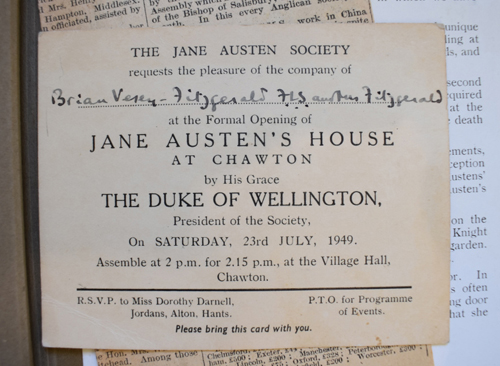 l Mrs. Henry
Hampton, Middlesex.
officiated, assisted by
Assembly which
of the Bishop of Salisbury
In this every Anglican
work in China
THE JANE AUSTEN SOCIETY
requests the pleasure of the company of
Brian Vesey-Fitzgerald
Fitzgerald
at the Formal Opening of
JANE AUSTEN'S HOUSE
AT CHAWTON
by His Grace
THE DUKE OF WELLINGTON,
President of the Society,
On SATURDAY, 23rd JULY, 1949.
Assemble at 2 p.m. for 2.15 p.m., at the Village Hall,
Chawton.
R.S.V.P. to Miss Dorothy Darnell,
Jordans, Alton, Hants.
P.T.O. for Programme
of Events.
Please bring this card with you.
unique
ling at
ds, and
second
quired
at the
death
ements,
ception
ustens'
usten's
on the
Knight
garden.
or. In
s often
ng door
hat she
Hon. Mrs.
tehead. Among those
Chelmsford,
£500; Exeter,
Manchester,
Lincoln, £200; Oxford, £328; Peterborough,
£200; Worcester, £360;